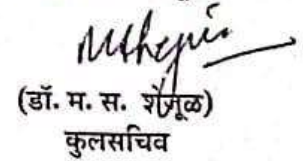 (डॉ. म. स. शेजूळ)
कुलसचिव